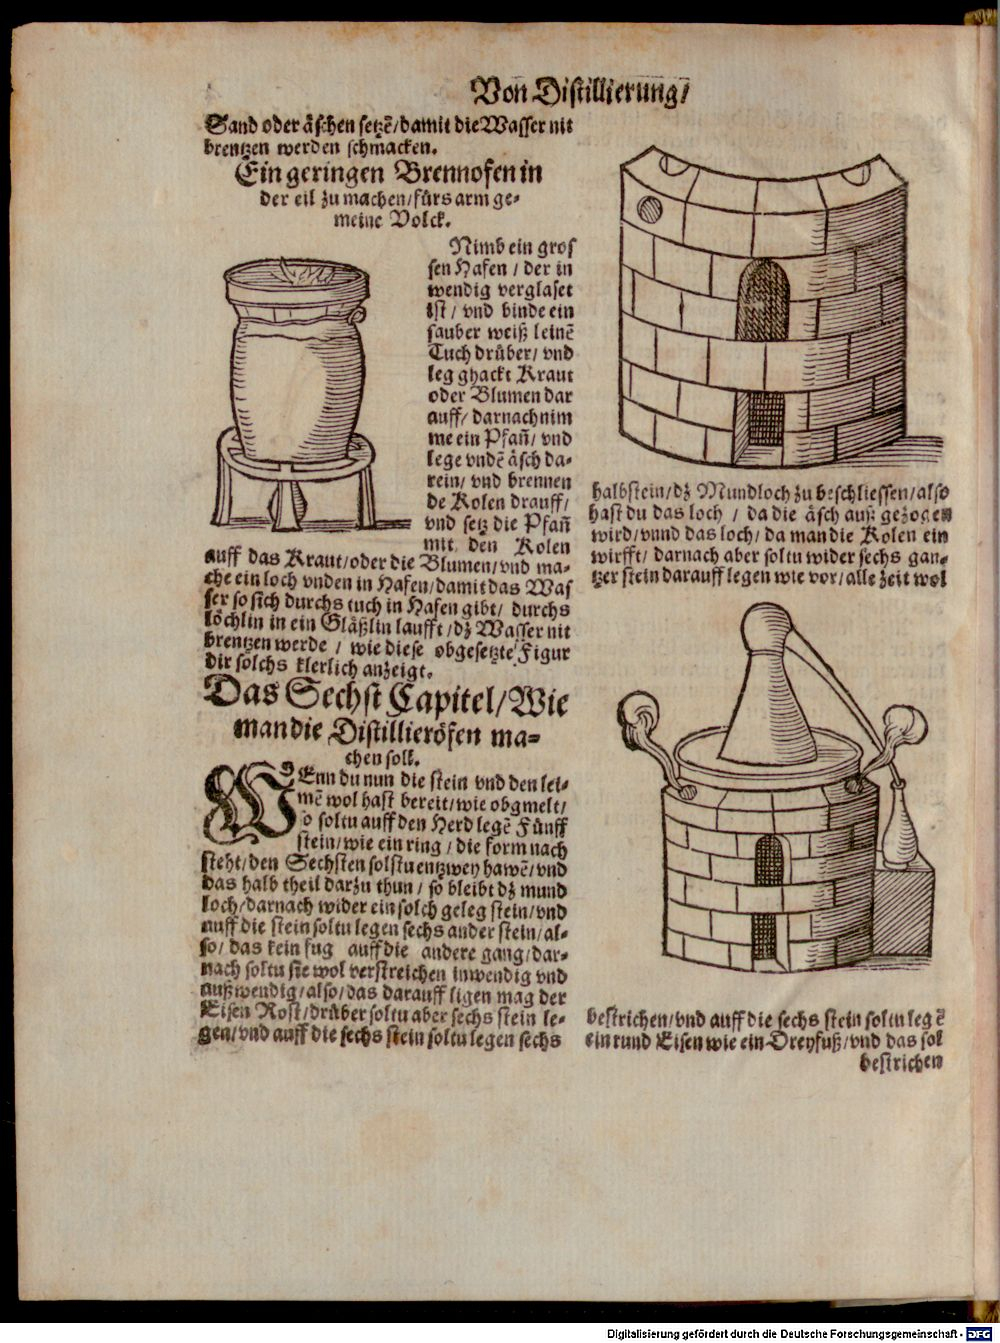 Von Distillierung/
Sand oder äschen setzē/damit die Wasser nit
brentzen werden schmacken.
Ein geringen Brennofen in
der eil zu machen/fürs arm ge-
meine Volck.
Nimb ein gros
sen Hafen / der in
wendig verglaset
ist / vnd binde ein
sauber weiß leinē
Tuch drüber/ vnd
leg ghackt Kraut
oder Blumen dar
auff/ darnach nim
me ein Pfañ/ vnd
lege vndē äsch da-
rein/ vnd brennen
de Kolen drauff/
vnd setz die Pfañ
mit den Kolen
auff das Kraut/oder die Blumen/vnd ma-
che ein loch vnden in Hafen/damit das Was
ser so sich durchs tuch in Hafen gibt/ durchs
löchlin in ein Gläßlin laufft/dz Wasser nit
brentzen werde / wie diese obgesetzte Figur
dir solchs klerlich anzeigt.
Das Sechst Capitel/Wie
man die Distillieröfen ma-
chen soll.
WEnn du nun die stein vnd den lei-
mē wol hast bereit/wie obgmelt/
so soltu auff den Herd legē Fünff
stein/wie ein ring / die form nach
steht/den Sechsten solstu entzwey hawē/vnd
das halb theil darzu thun / so bleibt dz mund
loch/darnach wider ein solch geleg stein/vnd
auff die stein soltu legen sechs ander stein/al-
so/ das kein fug auff die andere gang/dar-
nach soltu sie wol verstreichen inwendig vnd
außwendig/also/das darauff ligen mag der
Eisen Rost/drüber soltu aber sechs stein le-
gen/vnd auff die sechs stein soltu legen sechs
halbstein/dz Mundloch zu beschliessen/also
hast du das loch / da die äsch auß gezogen
wird/vnnd das loch/ da man die Kolen ein
wirfft/ darnach aber soltu wider sechs gan-
tzer stein darauff legen wie vor/alle zeit wol
bestrichen/vnd auff die sechs stein soltu legē
ein rund Eisen wie ein Dreyfuß/vnd das sol
bestrichen
Digitalisierung gefördert durch die Deutsche Forschungsgemeinschaft - DFG